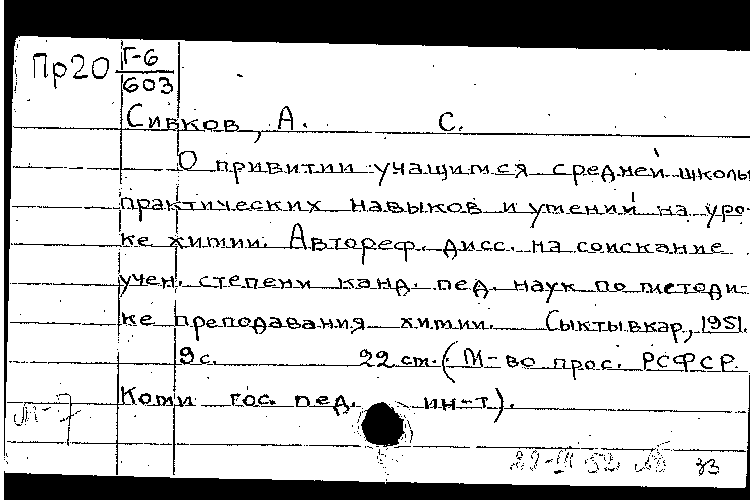 Пр20 Г-6
603
Сивков, А. С.
О привитии учащимся средней школы
практических навыков и умений на уро-
ке химии. Автореф. дисс. на соискание
учен. степени канд. пед. наук по методи-
ке преподавания химии. Сыктывкар, 1951.
9с. 22 см. (М-во прос. РСФСР.
Коми гос. пед. ин-т).
М-7
33